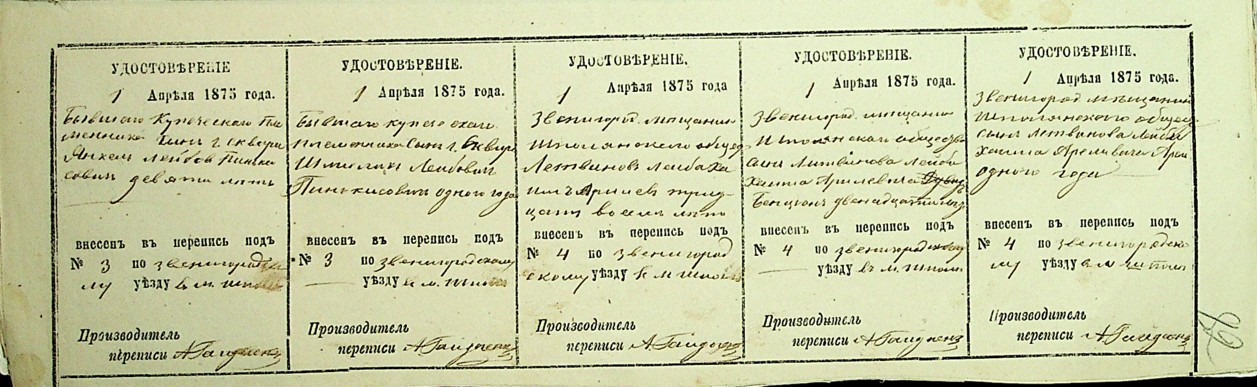 УДОСТОВѢРЕНІЕ
1 Апрѣля 1875 года.
Бывшаго Купеческаго Пле
менника сынъ г. Сквиры
Янкель Лейбов Пинька
совичъ девяти лѣтъ
внесенъ въ перепись подъ
№ 3 по звенигородско
му уѣзду в м. Шпола
Производитель
переписи А Гайдоенко
УДОСТОВѢРЕНІЕ.
1 Апрѣля 1875 года.
Бывшаго купеческаго
племенника сынъ г. Сквиры
Шмилик Лейбович
Пинькисович одного года
внесенъ въ перепись подъ
№ 3 по звенигородскому
уѣзду в м. Шпола
Производитель
переписи А Гайдоенко
УДОСТОВѢРЕНІЕ.
1 Апрѣля 1875 года
Звенигород. мѣщанин
Шполянскаго общес
Летвинов Лейба Ха
имъ Арилев трид
цати восем лѣтъ
внесенъ въ перепись подъ
№ 4 по звенигород
скому уѣзду в м Шпола
Производитель
переписи А Гайдоенко
УДОСТОВѢРЕНІЕ.
1 Апрѣля 1875 года.
Звенигрод. мѣщанина
Шполянскаго общества
сын Литвинова Лейби
Хаима Арилевича
Бенцион двенадцати лѣт
внесенъ въ перепись подъ
№ 4 по звенигородскому
уѣзду въ м. Шпола
Производитель
переписи А Гайдоенко
УДОСТОВѢРЕНІЕ.
1 Апрѣля 1875 года.
Звенигород мѣщанина
Шполянскаго общес
сын Летвинова Лейби
Хаима Арелевича
одного года
внесенъ въ перепись подъ
№ 4 по звенигородско
му уѣзду в м Шпола
Производитель
переписи А Гайдоенко